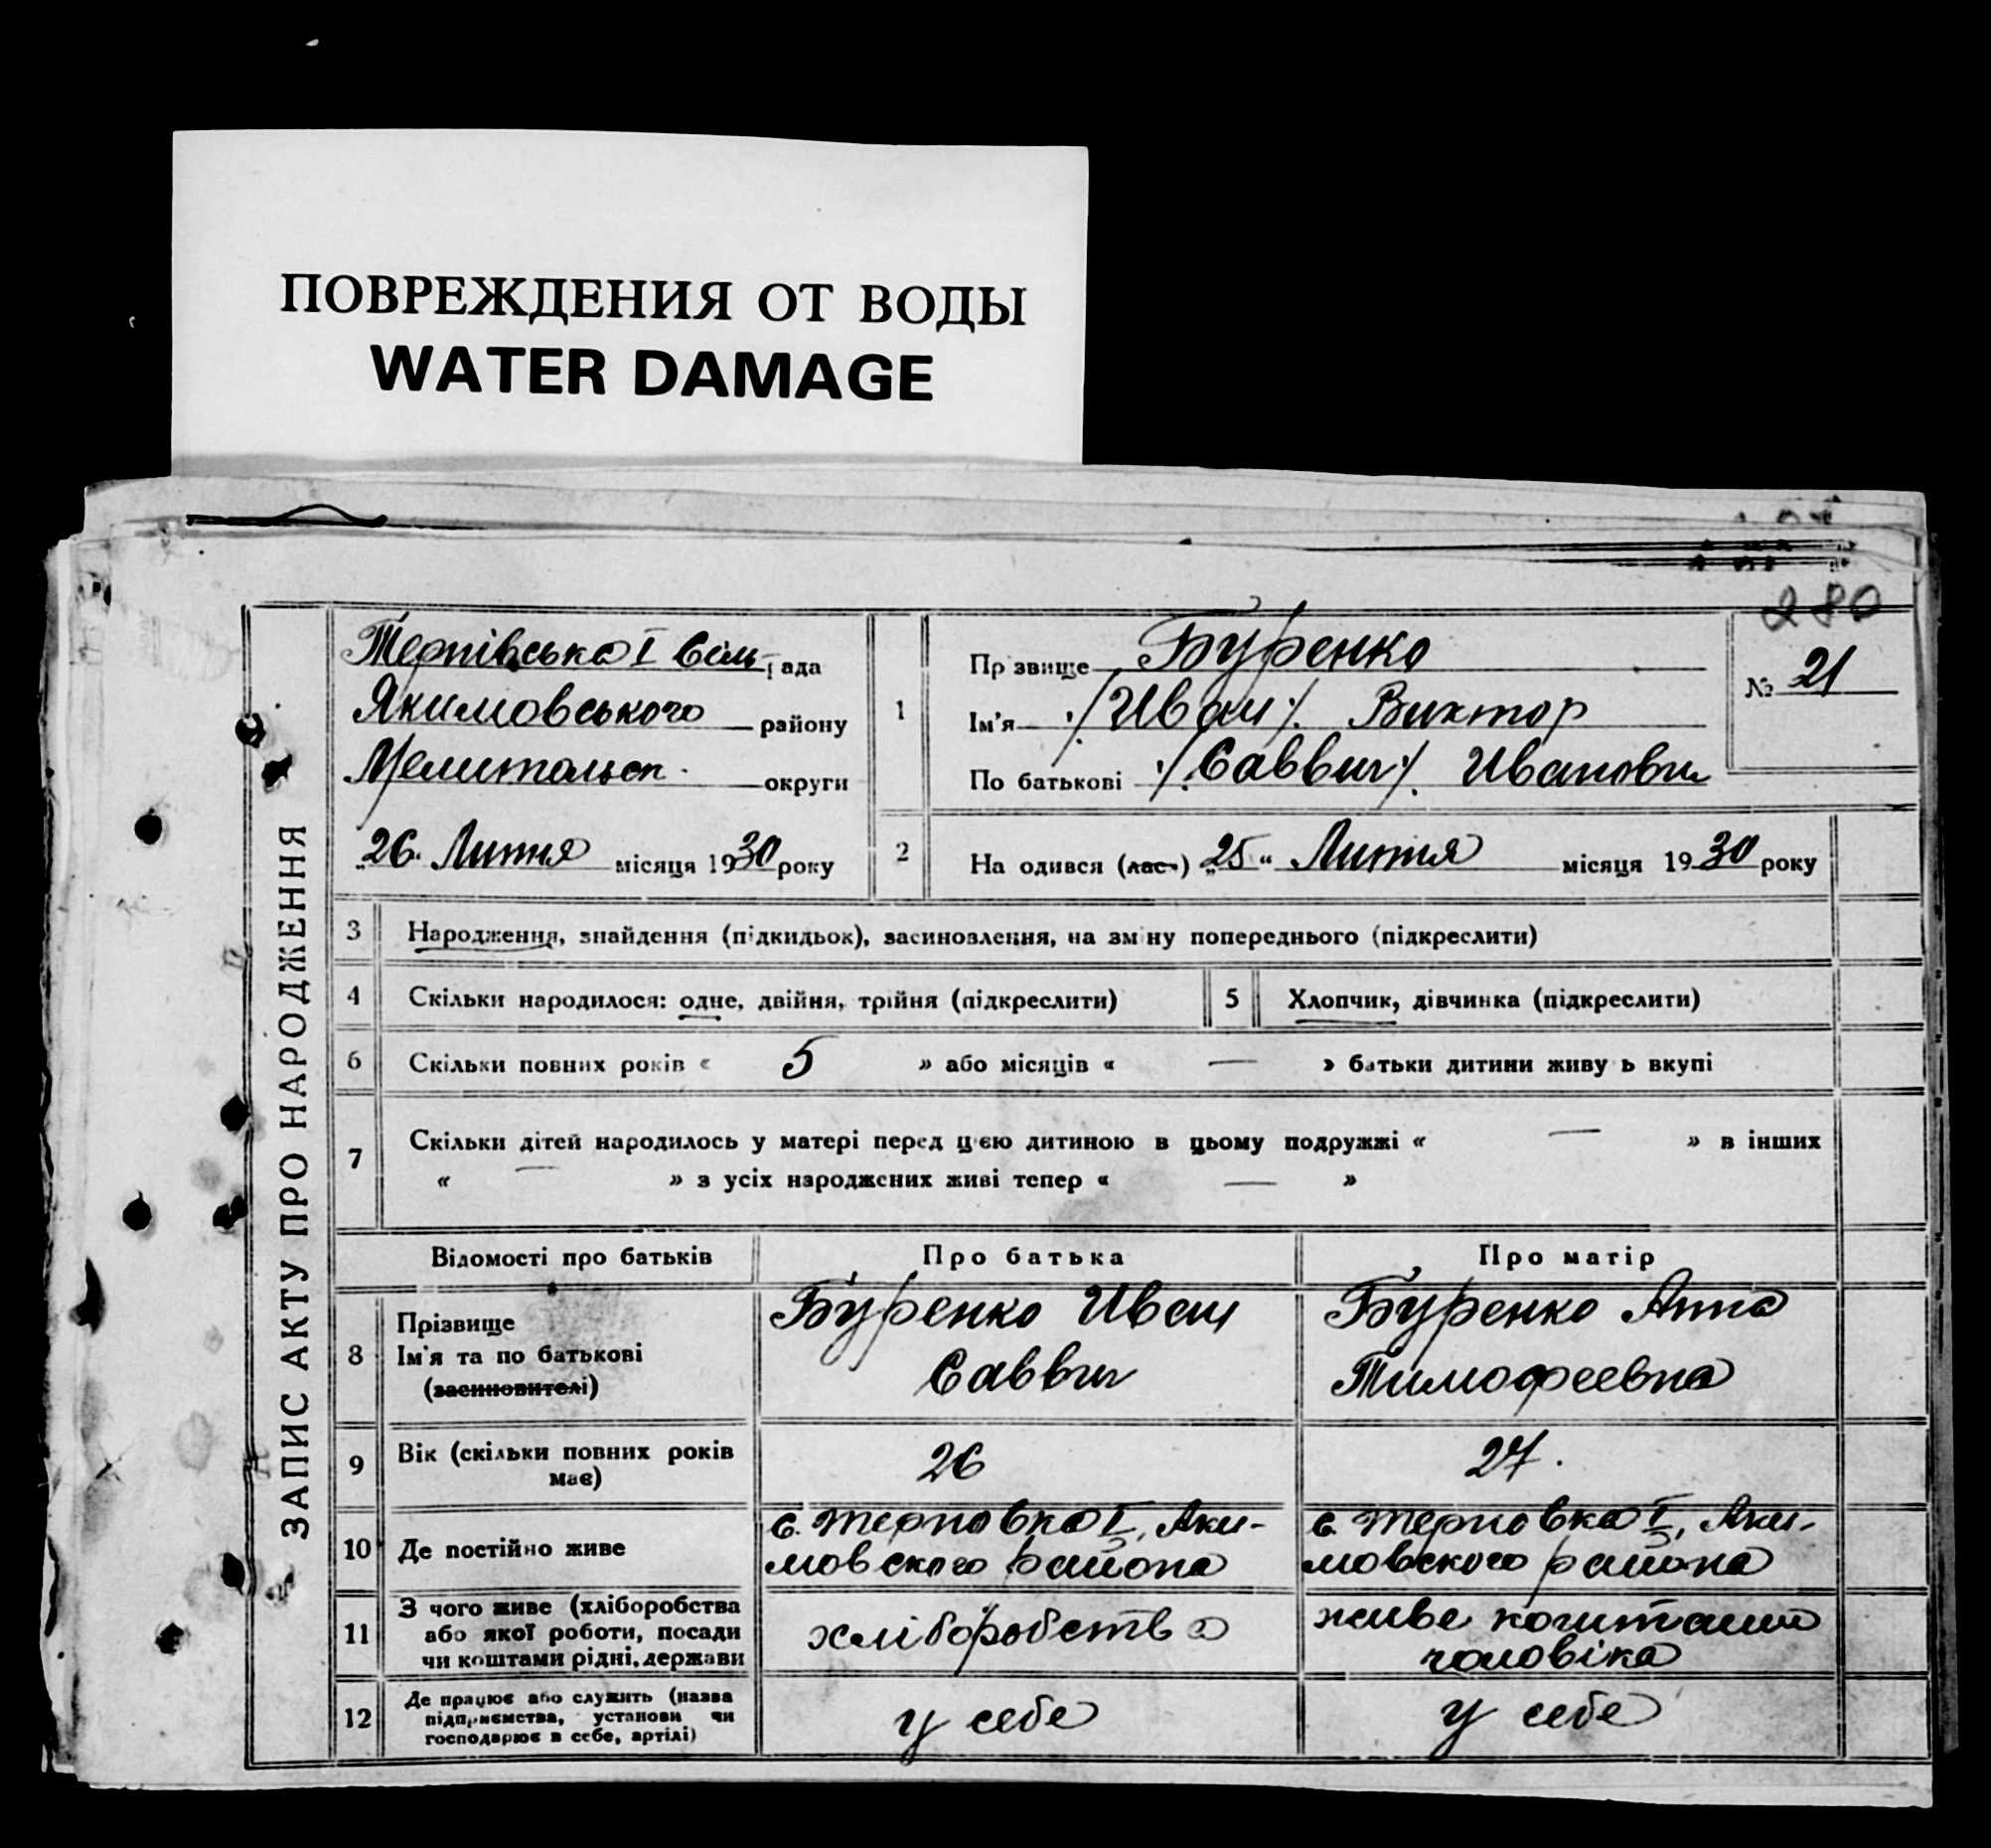 ПОВРЕЖДЕНИЯ ОТ ВОДЫ
WATER DAMAGE
280
ЗАПИС АКТУ ПРО НАРОДЖЕННЯ
Терпівська I Сіль рада
Якимовського району
Мелитольск. округи
26. Лютня місяця 1930 року
1
Прізвище Буренко
Ім'я /Иван/. Виктор
По батькові /Саввич/. Иванович
№ 21
2 На одився (лась) „25“ Лютня місяця 1930 року
3 Народження, знайдення (підкидьок), засиновлення, на зміну попереднього (підкреслити)
4 Скільки народилося: одне, двійня, трійня (підкреслити) 5 Хлопчик, дівчинка (підкреслити)
6 Скільки повних років « 5 » або місяців « — » батьки дитини живуть вкупі
7 Скільки дітей народилось у матері перед цією дитиною в цьому подружжі « — » в інших
« — » з усіх народжених живі тепер « — »
Відомості про батьків Про батька Про матір
8 Прізвище
Ім'я та по батькові
(засиновителі)
Буренко Иван
Саввич
Буренко Анна
Тимофеевна
9 Вік (скільки повних років
має)
26
27.
10 Де постійно живе
с. Терновка I, Аки-
мовского района
с. Терновка I, Аки-
мовского района
11 З чого живе (хліборобства
або якої роботи, посади
чи коштами рідні, держави
хліборобства
живе коштами
чоловіка
12 Де працює або служить (назва
підприємства, установи чи
господарює в себе, артілі)
у себе
у себе